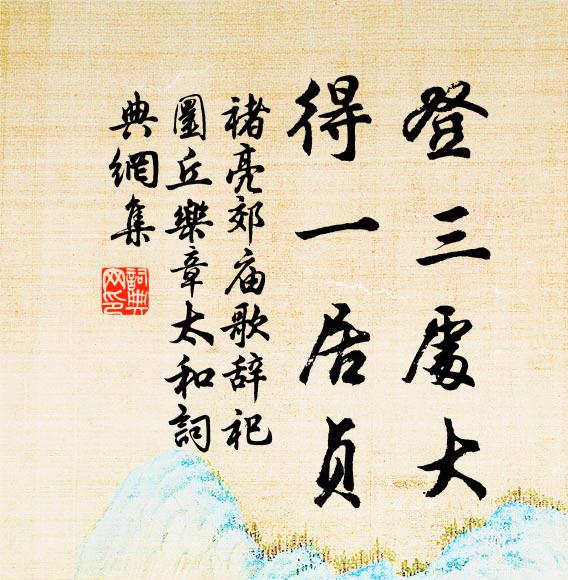 登三處大
得一居貞
褚亮郊庙歌辞祀
圜丘樂章太和詞
典網集
詞典網印